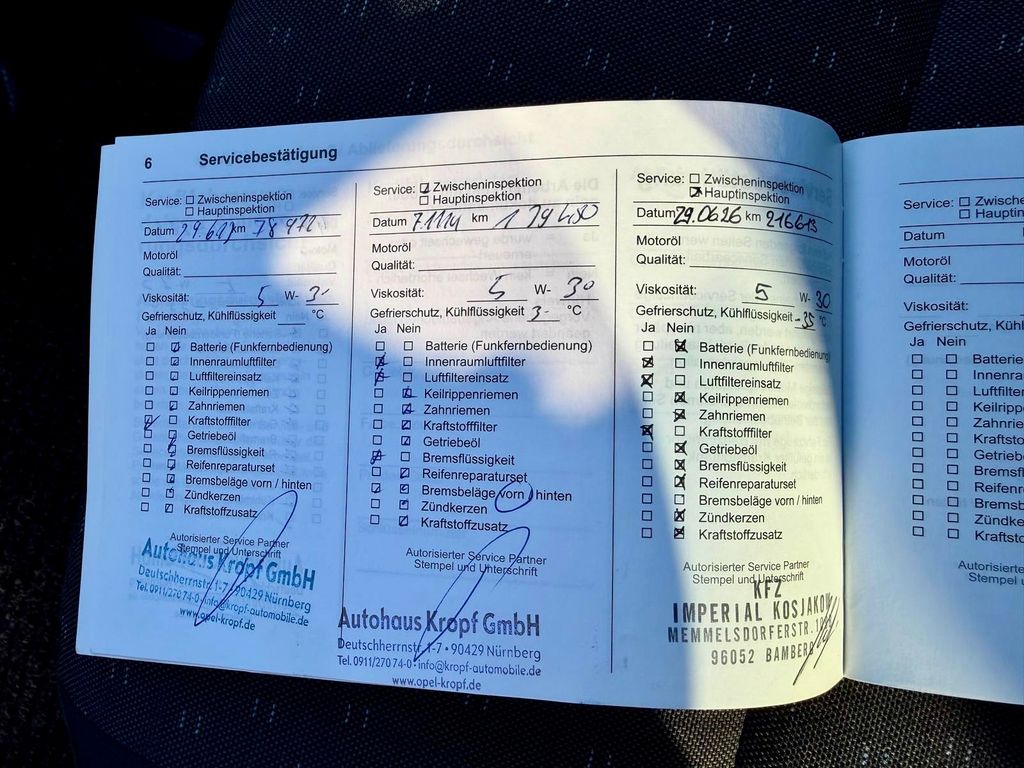 6 Servicebestätigung
Service: Zwischeninspektion
Hauptinspektion
Datum km 78 972
Motoröl
Qualität:
Viskosität: 5 W- 3-
Gefrierschutz, Kühlflüssigkeit °C
Ja Nein
Batterie (Funkfernbedienung)
Innenraumluftfilter
Luftfiltereinsatz
Keilrippenriemen
Zahnriemen
Kraftstofffilter
Getriebeöl
Bremsflüssigkeit
Reifenreparaturset
Bremsbeläge vorn / hinten
Zündkerzen
Kraftstoffzusatz
Autorisierter Service Partner
Stempel und Unterschrift
Autohaus Kropf GmbH
Deutschherrnstr. 1-7 • 90429 Nürnberg
Tel. 0911/27074-0 • info@kropf-automobile.de
www.opel-kropf.de
Service: Zwischeninspektion
Hauptinspektion
Datum 7.11.14 km 139480
Motoröl
Qualität:
Viskosität: 5 W- 30
Gefrierschutz, Kühlflüssigkeit 3- °C
Ja Nein
Batterie (Funkfernbedienung)
Innenraumluftfilter
Luftfiltereinsatz
Keilrippenriemen
Zahnriemen
Kraftstofffilter
Getriebeöl
Bremsflüssigkeit
Reifenreparaturset
Bremsbeläge vorn / hinten
Zündkerzen
Kraftstoffzusatz
Autorisierter Service Partner
Stempel und Unterschrift
Autohaus Kropf GmbH
Deutschherrnstr. 1-7 • 90429 Nürnberg
Tel. 0911/27074-0 • info@kropf-automobile.de
www.opel-kropf.de
Service: Zwischeninspektion
Hauptinspektion
Datum 29.06.26 km 216613
Motoröl
Qualität:
Viskosität: 5 W- 30
Gefrierschutz, Kühlflüssigkeit -35 °C
Ja Nein
Batterie (Funkfernbedienung
Innenraumluftfilter
Luftfiltereinsatz
Keilrippenriemen
Zahnriemen
Kraftstofffilter
Getriebeöl
Bremsflüssigkeit
Reifenreparaturset
Bremsbeläge vorn / hinten
Zündkerzen
Kraftstoffzusatz
Autorisierter Service Partner
Stempel und Unterschrift
KFZ
IMPERIAL KOSJAKOW
MEMMELSDORFERSTR.
96052 BAMBERG
Service: Zwisch
Hauptin
Datum
Motoröl
Qualität:
Viskosität:
Gefrierschutz, Kühlfl
Ja Nein
Batterie
Innenra
Luftfilte
Keilripp
Zahnrie
Kraftsto
Getrieb
Bremsfl
Reifenre
Bremsbe
Zündker
Kraftsto
Autorisierter
Stempel u